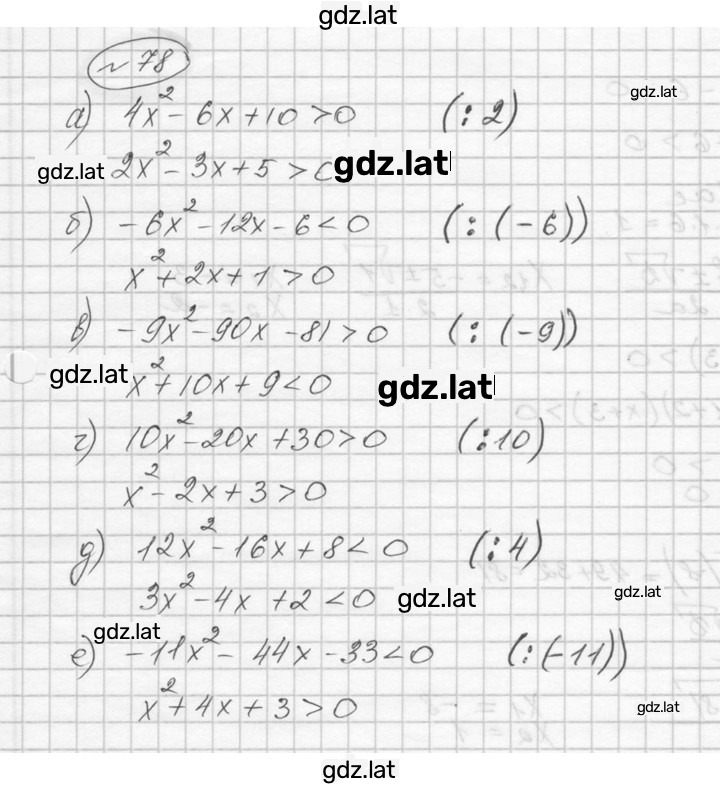 gdz.lat
№ 78
gdz.lat
а) 4x² - 6x + 10 > 0 (: 2)
gdz.lat 2x² - 3x + 5 > 0 gdz.lat
б) -6x² - 12x - 6 < 0 (: (-6))
x² + 2x + 1 > 0
в) -9x² - 90x - 81 > 0 (: (-9))
gdz.lat x² + 10x + 9 < 0 gdz.lat
г) 10x² - 20x + 30 > 0 (: 10)
x² - 2x + 3 > 0
д) 12x² - 16x + 8 < 0 (: 4)
3x² - 4x + 2 < 0 gdz.lat gdz.lat
gdz.lat
е) -11x² - 44x - 33 < 0 (: (-11))
x² + 4x + 3 > 0 gdz.lat
gdz.lat